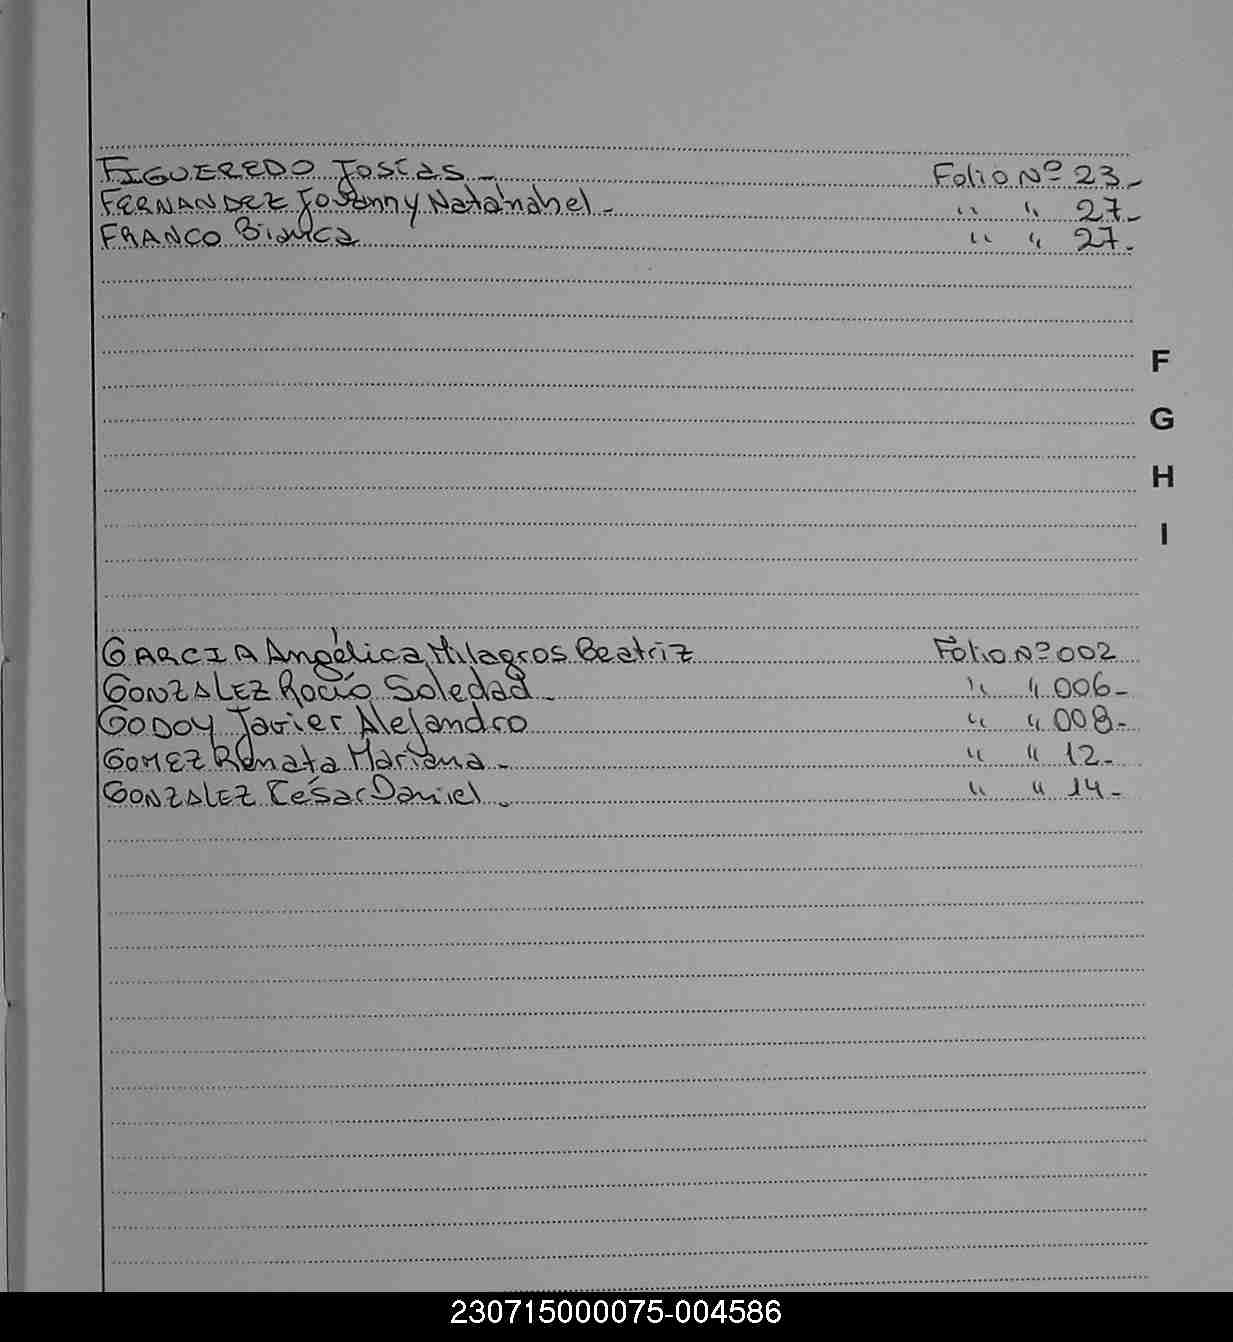 FIGUEREDO Josías - Folio Nº 23-
FERNANDEZ Jovanny Natanahel - " " 27-
FRANCO Bianca " " 27-
F
G
H
I
GARCIA Angélica Milagros Beatriz Folio Nº 002
GONZALEZ Rocío Soledad - " " 006-
GODOY Javier Alejandro " " 008-
GOMEZ Renata Mariana - " " 12-
GONZALEZ César Daniel - " " 14-
230715000075-004586